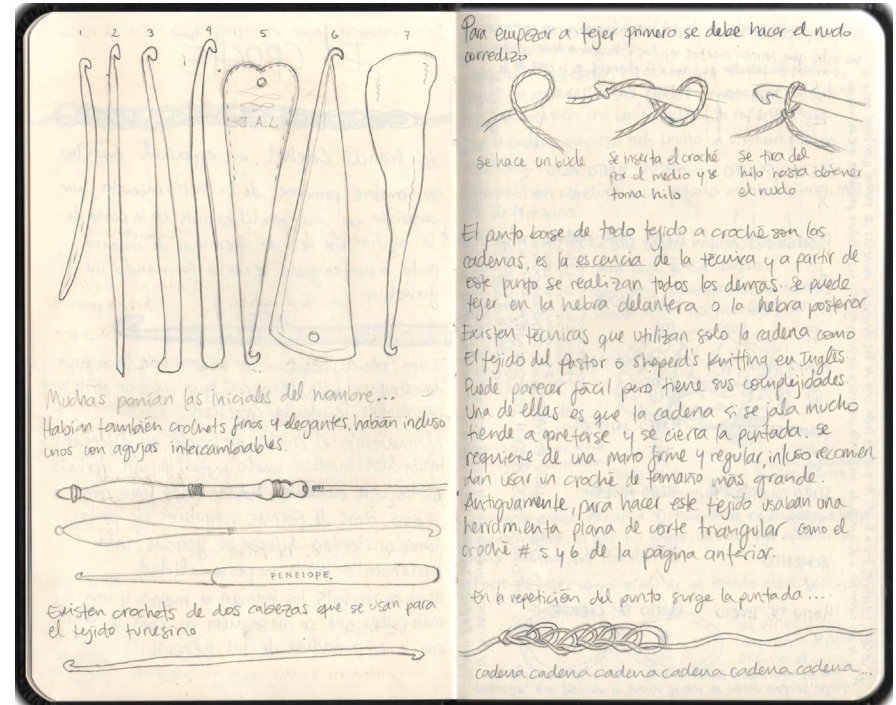 1 2 3 4 5 6 7
J.A.D.
Muchas ponían las iniciales del nombre...
Habían también crochets finos y elegantes, habían incluso
unos con agujas intercambiables.
PENELOPE.
Existen crochets de dos cabezas que se usan para
el tejido tunesino
Para empezar a tejer primero se debe hacer el nudo
corredizo
se hace un bucle
se inserta el croché
por el medio y se
toma hilo
se tira del
hilo hasta obtener
el nudo
El punto base de todo tejido a croché son las
cadenas, es la escencia de la técnica y a partir de
este punto se realizan todos los demas. Se puede
tejer en la hebra delantera o la hebra posterior.
Existen técnicas que utilizan solo la cadena como
El tejido del Pastor o Sheperd's Knitting en Inglés.
Puede parecer fácil pero tiene sus complejidades.
Una de ellas es que la cadena si se jala mucho
tiende a apretarse y se cierra la puntada. Se
requiere de una mano firme y regular, incluso recomien
dan usar un croché de tamaño más grande.
Antiguamente, para hacer este tejido usaban una
herramienta plana de corte triangular como el
croché # 5 y 6 de la página anterior.
En la repetición del punto surge la puntada...
cadena cadena cadena cadena cadena cadena...